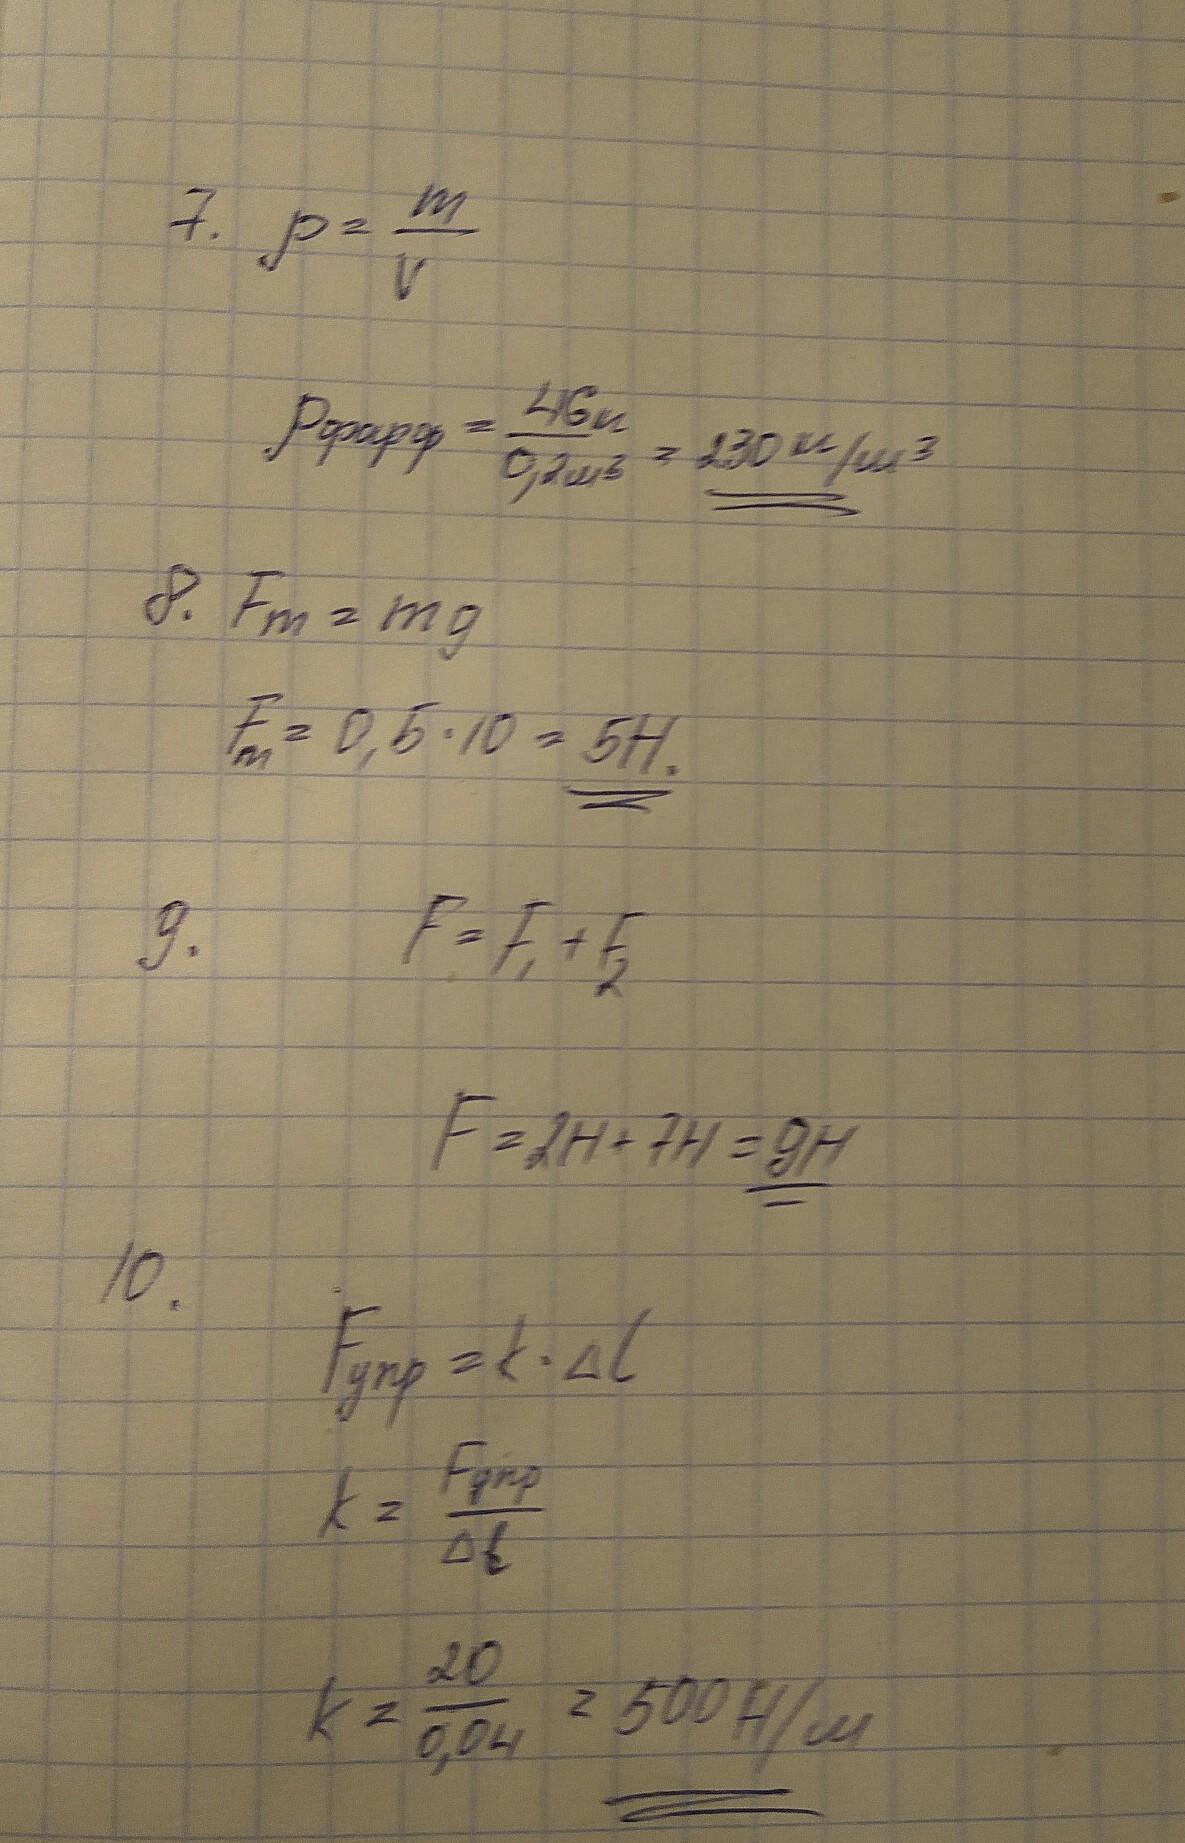 7. ρ = m/V
ρфарф = 46кг/0,2м³ = 230 кг/м³
8. Fт = mg
Fт = 0,5·10 = 5Н.
9. F = F₁ + F₂
F = 2Н + 7Н = 9Н
10.
Fупр = k · Δl
k = Fупр/Δl
k = 20/0,04 = 500 Н/м